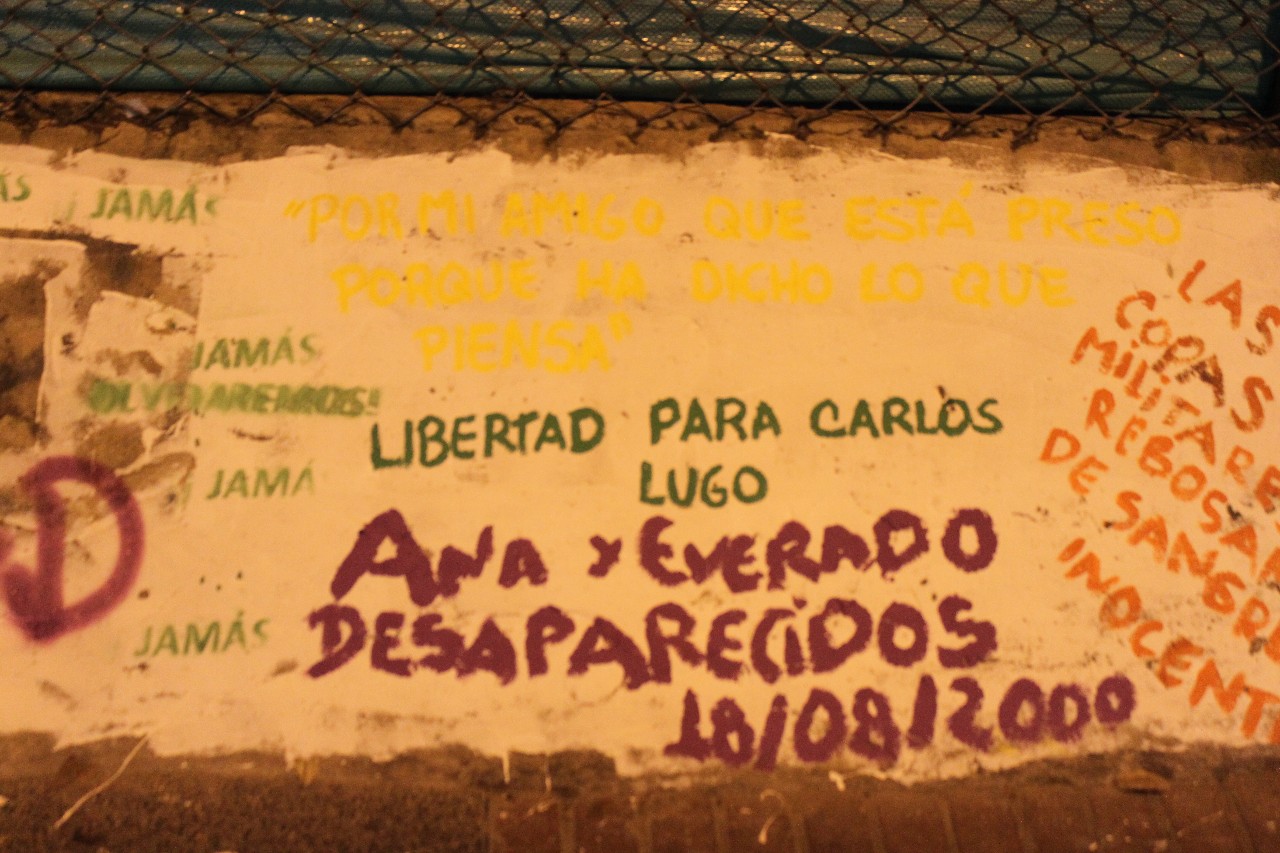 JAMÁS
"POR MI AMIGO QUE ESTÁ PRESO
PORQUE HA DICHO LO QUE
PIENSA"
JAMÁS
OLVIDAREMOS!
LIBERTAD PARA CARLOS
LUGO
JAMÁ
ANA Y EVERADO
DESAPARECIDOS
18/08/2000
JAMÁS
D
LAS
COPAS
MILITARE
REBOSAN
DE SANGRE
INOCENT